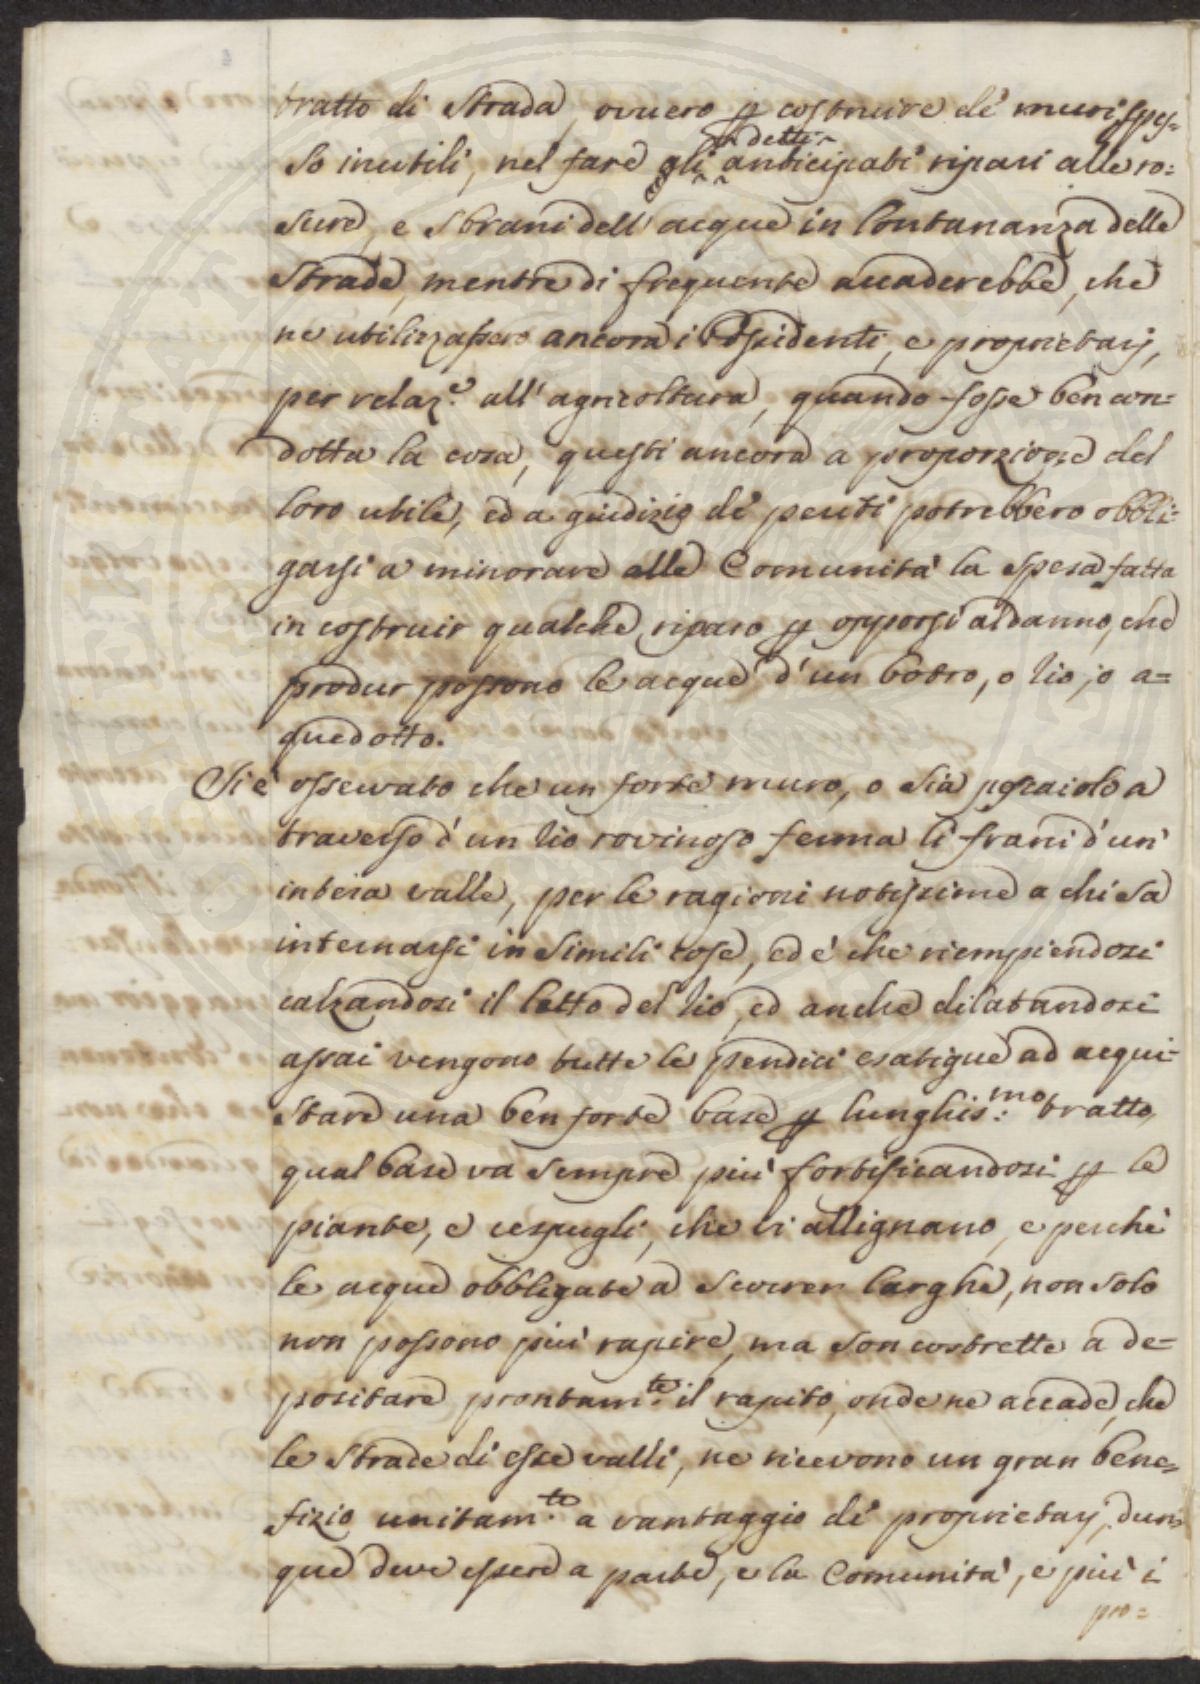 tratto di Strada, ovvero p costruire de' muri spes-
So inutili, nel fare gli detti anticipati ripari alle ro:
sure, e sbrani dell'acque in lontananza delle
Strade, mentre di frequente accaderebbe, che
ne utilizzassero ancora i Possidenti, e proprietarj,
per relaz.e all'agricoltura, quando fosse ben con=
dotta la cosa, questi ancora a proporzione del
loro utile, ed a giudizio de' periti potrebbero obbli-
garsi a minorare alle Comunità la spesa fatta
in costruir qualche riparo p opporsi al danno, che
produr possono le acque d'un botro, o rio, o a=
quedotto.
Si è osservato che un forte muro, o sia pescaiolo a
traverso d'un rio rovinoso ferma li frani d'un'
intera valle, per le ragioni notissime a chi sa
internarsi in simili cose, ed è che riempiendosi
calzandosi il letto del rio, ed anche dilatandosi
assai vengono tutte le pendici esatigue ad acqui-
stare una ben forte base p lunghis.mo tratto,
qual base va sempre più fortificandosi p le
piante, e cespugli, che vi allignano, e perchè
le acque obbligate a scorrer larghe, non solo
non possono più rapire, ma son costrette a de=
positare prontam.te il rapito, onde ne accade, che
le strade di esse valli, ne ricevono un gran bene=
fizio unitam.te a vantaggio de' proprietarj, dun=
que deve essere a parte, e la Comunità, e più i
pro=